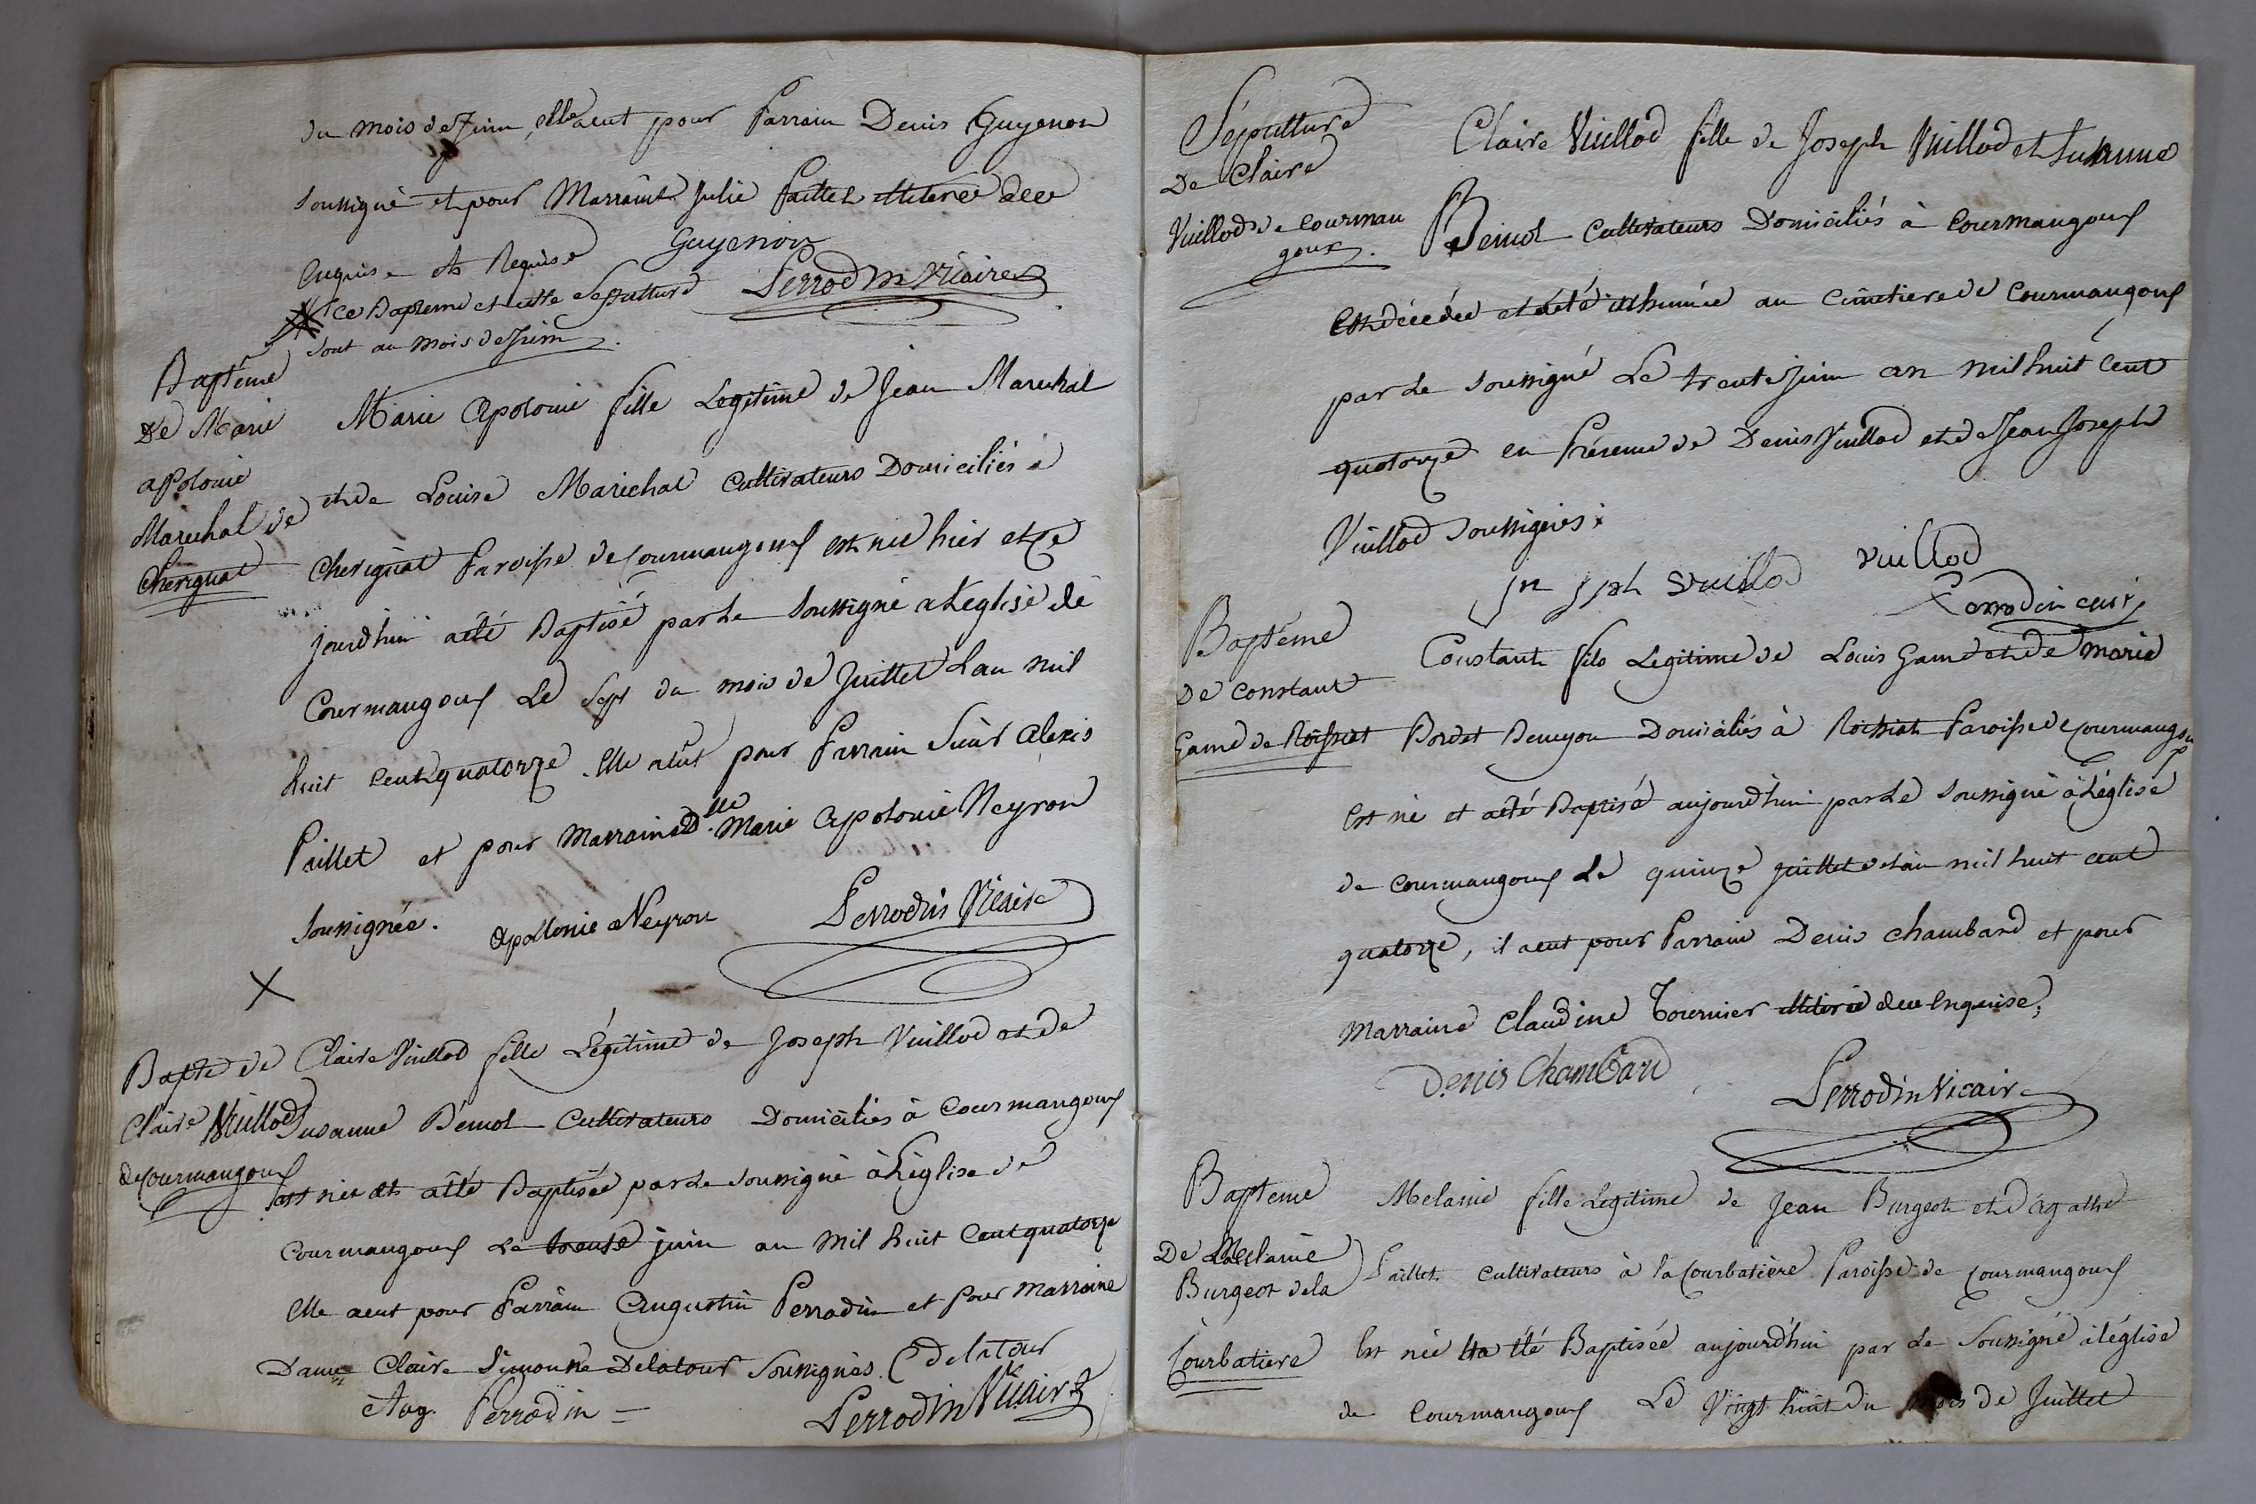 du mois de Juin, elle a eut pour Parrain Denis Guyenon
soussigné et pour Marraine Julie Paillet illiterée de ce
enquise et Requise Guyenon
Perrodin Vicaire
ce Baptême et cette Sepulture
sont au mois de Juin.
Baptême
De Marie
apolonie
Marechal de
Cherignat
Marie Apolonie fille Legitime de Jean Marechal
et de Louise Marichal Cultivateurs Domiciliés à
Cherignat Paroisse de Courmangoux est née hier et ce
jourd'hui a été Baptisé par le soussigné a l'eglise de
Courmangoux Le Sept du mois de Juillet l'an mil
huit cent quatorze. Elle a eut pour Parrain Sieur Alexis
Paillet et pour Marraine Dlle Marie Apolonie Neyron
soussignée. Apollonie Neyron Perrodin Vicaire
X
Bapte de
Claire Vuillod
de Courmangoux
Claire Vuillod fille Légitime de Joseph Vuillod et de
Susanne Bémol Cultivateurs Domiciliés à Courmangoux
est née et a été Baptisée par le soussigné à L'église de
Courmangoux le trente juin an mil huit cent quatorze
Elle a eut pour Parrain Augustin Perradin et pour Marraine
Dame Claire Simonne Delatour Soussignés. C delatour
Aug. Perrodin = Perrodin Vicaire
Sépulture
De Claire
Vuillod de Courman
goux.
Claire Vuillod fille de Joseph Vuillod et Susanne
Bémol Cultivateurs Domiciliés à Courmangoux
Est décédée et a été inhumée au Cimetiere de Courmangoux
par le soussigné Le trente Juin an mil huit cent
quatorze en Présence de Denis Vuillod et de Jean Joseph
Vuillod soussignés:
Jn Jph Vuillod Vuillod
Perrodin curé
Baptême
De Constant
Game de Roissiat
Constant fils Legitime de Louis Game et de Marie
Bordet Domiciliés à Roissiat Paroisse de Courmangoux
Est né et a été Baptisé aujourd'hui par Le soussigné à L'église
de Courmangoux Le quinze juillet de l'an mil huit cent
quatorze, il a eut pour Parrain Denis Chambard et pour
Marraine Claudine Tournier illiterée de ce enquise;
Denis Chambard
Perrodin Vicaire
Baptême
De Melanie
Burgeot de la
Courbatiere
Melanie fille Legitime de Jean Burgeot et d'Agathe
Paillet Cultivateurs à la Courbatière Paroisse de Courmangoux
Est née et a été Baptisée aujourd'hui par Le Soussigné à l'église
de Courmangoux Le Vingt huit du Mois de Juillet